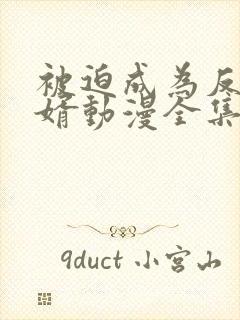 被迫成為反
婿動漫全集
9duct 小宮山